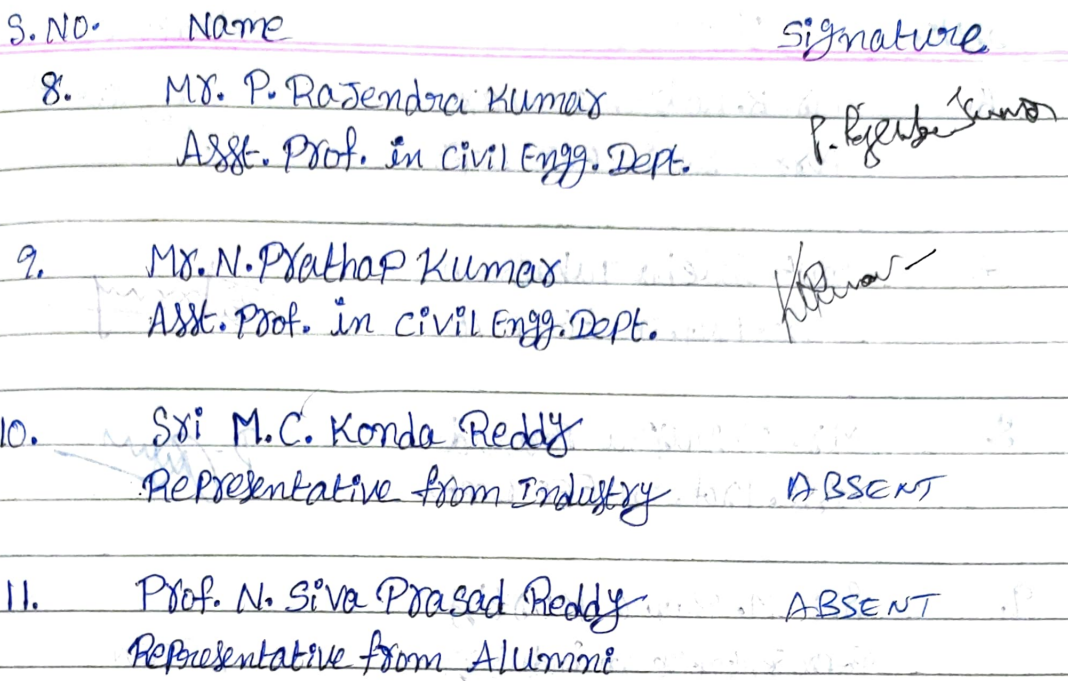 S. NO. Name Signature
8. Mr. P. Rajendra Kumar
P. Rajendra Kumar
Asst. Prof. in Civil Engg. Dept.
9. Mr. N. Prathap Kumar
Asst. Prof. in Civil Engg. Dept.
10. Sri M.C. Konda Reddy
Representative from Industry ABSENT
11. Prof. N. Siva Prasad Reddy ABSENT
Representative from Alumini